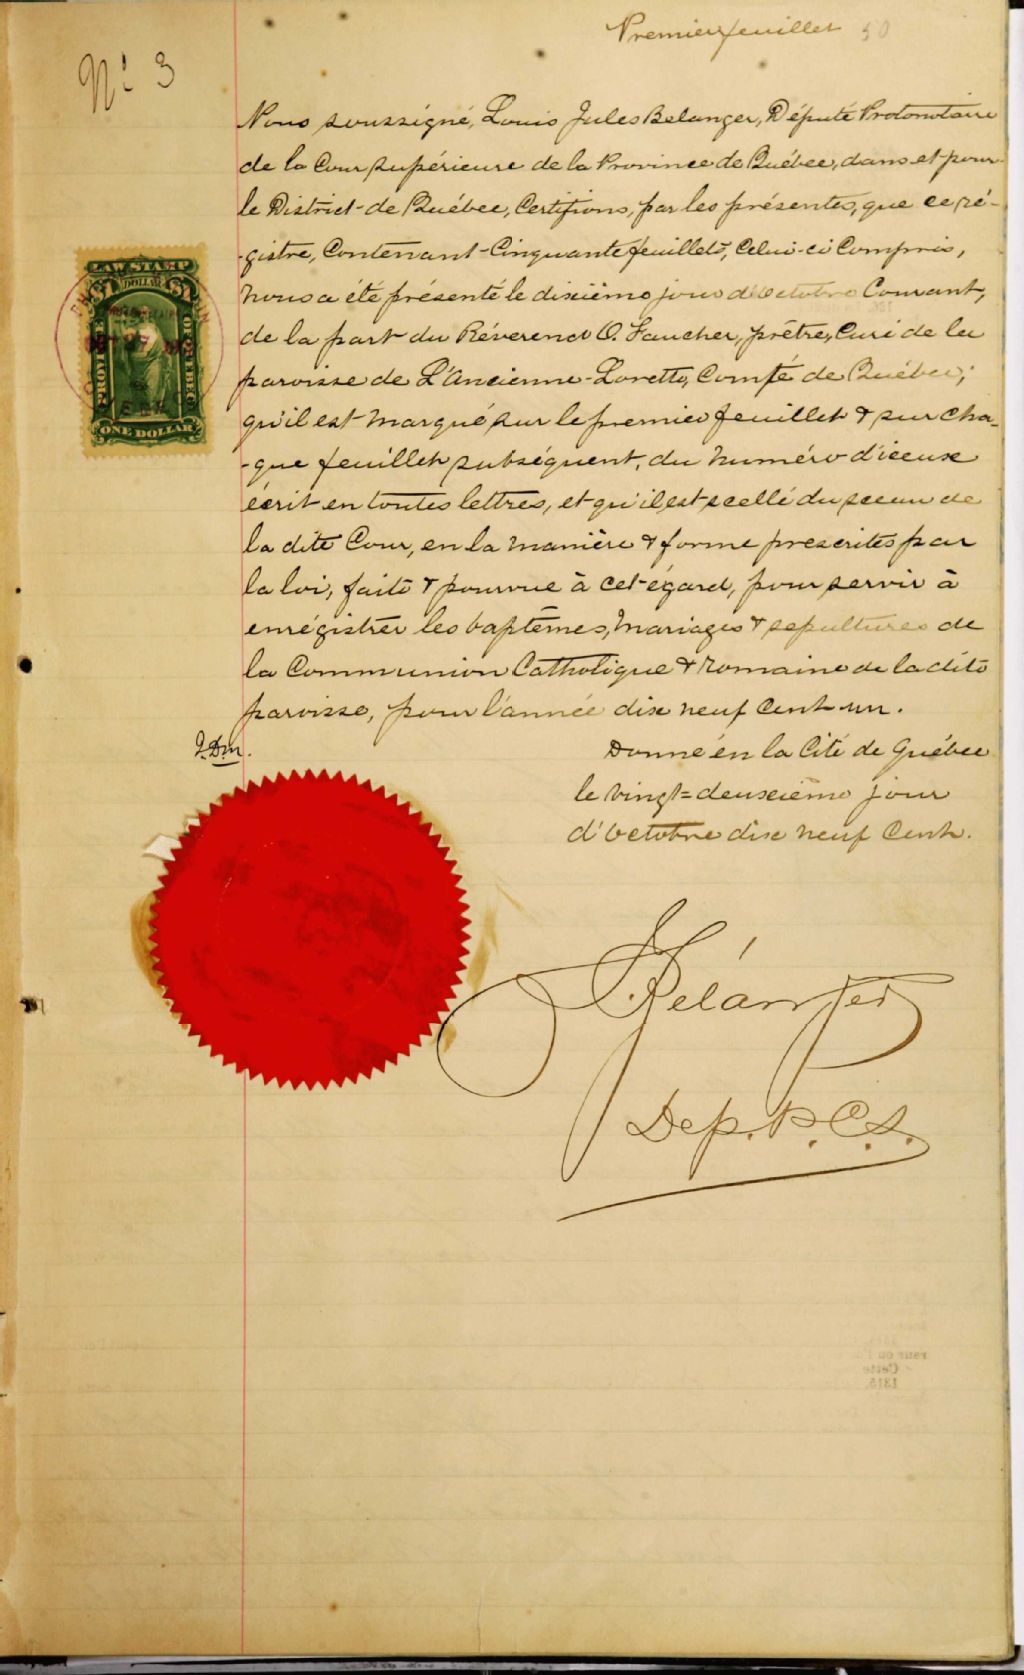 Premier feuillet 50
No 3
Nous soussigné, Louis Jules Belanger, Député Protonotaire
de la Cour supérieure de la Province de Québec, dans et pour
le District de Québec, Certifions, par les présentes, que ce ré-
-gistre, Contenant Cinquante feuillets, Celui-ci Compris,
nous a été présenté le dixième jour d'Octobre Courant,
de la part du Révérend O. Faucher, prêtre, Curé de la
paroisse de L'Ancienne-Lorette, Comté de Québec;
qu'il est marqué sur le premier feuillet & sur cha-
-que feuillet subséquent, du numéro d'iceux
écrit en toutes lettres, et qu'il est scellé du sceau de
la dite Cour, en la manière & forme prescrites par
la loi, faite & pourvue à cet égard, pour servir à
enrégistrer les baptêmes, mariages & sepultures de
la Communion Catholique & Romaine de la dite
paroisse, pour l'année dix neuf Cent un.
Donné en la Cité de Québec
le vingt=deuxième jour
d'Octobre dix neuf Cent.
J.D.M.
LAW STAMP
DOLLAR
PROVINCE
OF QUEBEC
ONE DOLLAR
Bélanger
Dep. P. C. S.